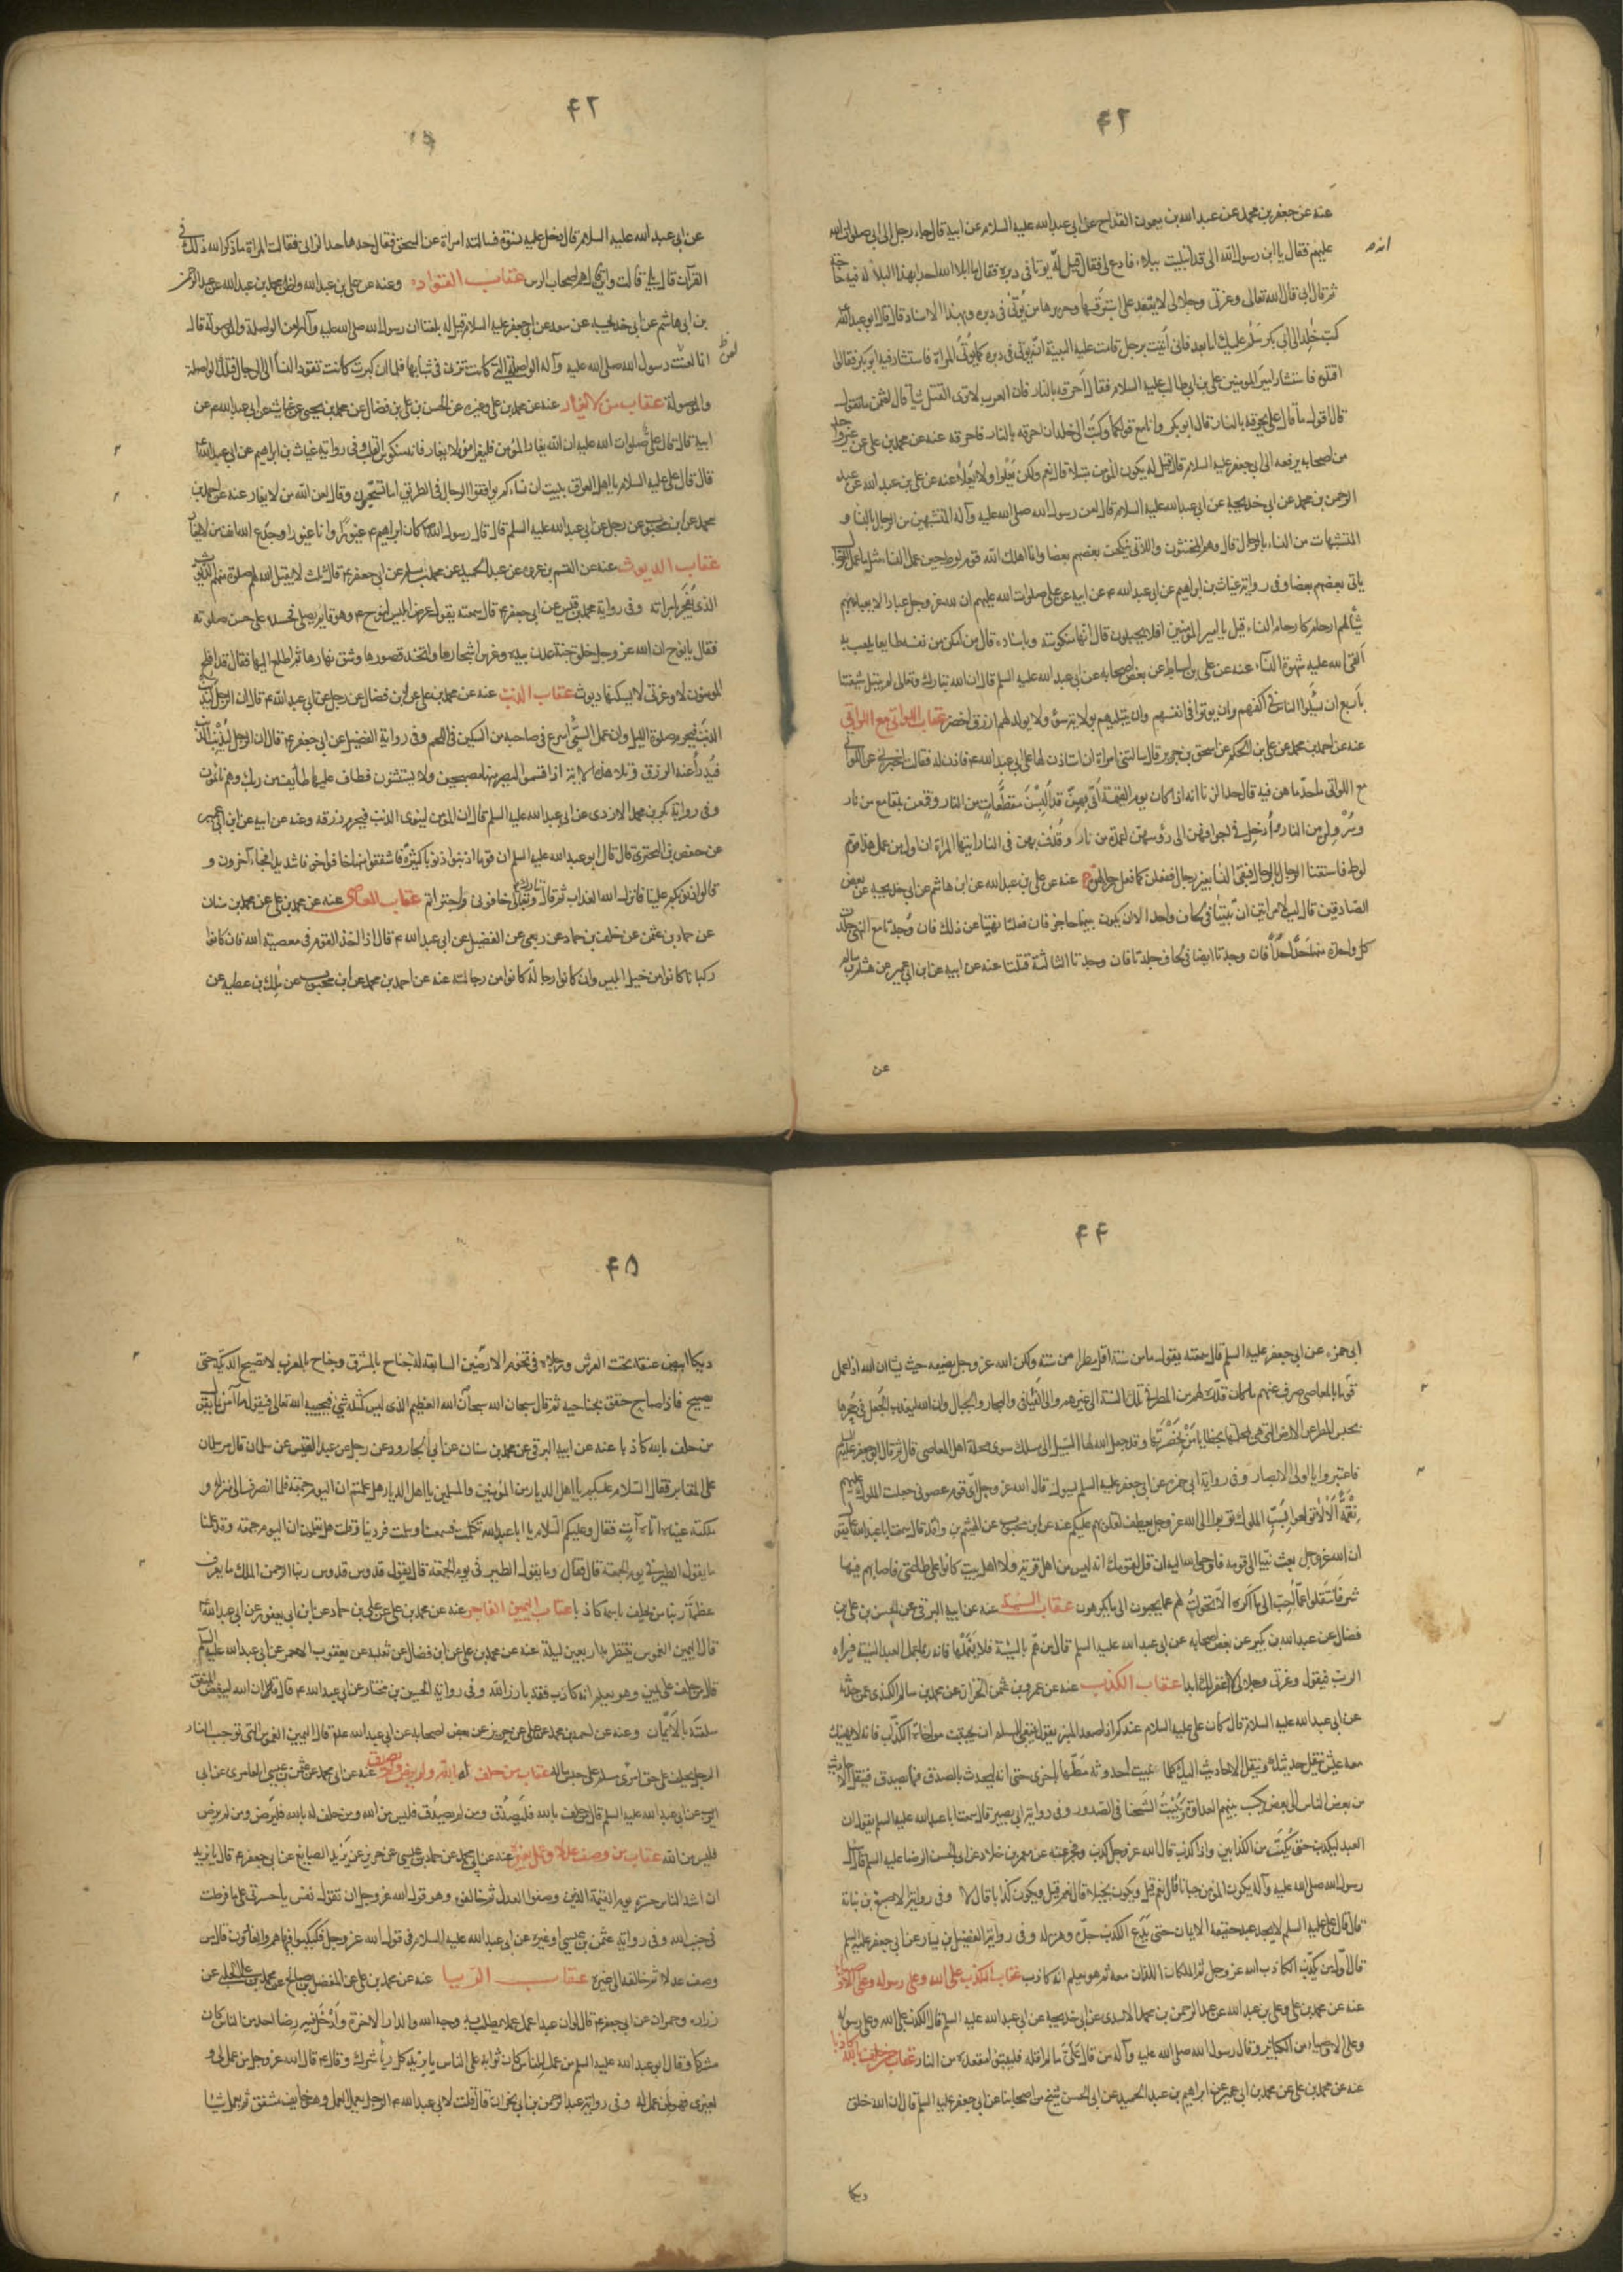 ۴۲
عنه عن جعفر بن محمد عن عبد الله بن ميمون القداح عن ابى عبد الله عليه السلام عن ابيه قال جاء رجل الى ابى صلوات الله
عليهم فقال يا ابن رسول الله انى قد ابتليت ببلاء فادع لى فقال قيل له يوتا فى دبره فقال ما ابلا الله احدا بهذا البلاء له فيه حاجة
ثم قال ابى قال الله تعالى وعزتى وجلالى لا يقعد على استبرقها وحريرها من يُؤتى فى دبره وبهذا الاسناد قال قال ابو عبد الله
كتب خلد الى ابى بكر سلام عليك اما بعد فانى اُتيت برجل قامت عليه البينة انّه يوتى فى دبره كما يُوتى المراة فاستشار فيه ابو بكر فقالوا
اقتلوه فاستشار امير المومنين على بن ابى طالب عليه السلام فقال اَحرقه بالنار فان العرب لا ترى القتل شياً قال لعثمن ما تقول
قال اقول ما قال على يحرقه بالنار قال ابو بكر وانا مع قولكما وكتب الى خلد ان احرقه بالنار فاحرقه عنه عن محمد بن على عن غير واحد
من اصحابه يرفعه الى ابى جعفر عليه السلام قال قيل له يكون المومن مبتلا قال نعم ولكن يَعْلوا ولا يُعلا عنه عن على بن عبد الله عن عبد
الرحمن بن محمد عن ابى خديجة عن ابى عبد الله عليه السلام قال لعن رسول الله صلى الله عليه وآله المتشبهين من الرجال بالنساء و
المتشبهات من النساء بالرجال قال وهم المخنثون واللاتى ينكحن بعضهم بعضا وانما اهلك الله قوم لوط حين عمل النساء مثل ما عمل الرجال
ياتى بعضهم بعضا وفى رواية غياث بن ابراهيم عن ابى عبد الله ع عن ابيه عن على صلوات الله عليهم ان لله عز وجل عبادا لا يعبأ بهم
شيأ لهم ارحام كارحام النساء قيل يا امير المومنين افلا يحبلون قال انها منكوسة وباسناده قال من امكن من نفسه طايعا يلعب به
القى الله عليه شهوة النساء عنه عن على بن اسباط عن بعض اصحابه عن ابى عبد الله عليه السلم قال ان الله تبارك وتعالى لم يبتل شيعتنا
باَربع ان يسئلوا الناس فى اكفهم وان يوتوا فى انفسهم وان يبتليهم بولاية سوء ولا يولد لهم ازرق اخضر عقاب اللواتى مع اللواتى
عنه عن احمد بن محمد عن على بن الحكم عن اسحق بن جرير قال سالتنى امراة ان استاذن لها على ابى عبد الله ع فاذن لها فقالت اخبرنى عن اللواتى
مع اللواتى ما حد ما هن فيه قال حد الزنا انه اذا كان يوم القيمة اُتى بهنّ قد اُلبسن مقطعات من النار وقنعن بمقامع من نار
وسرولن من النار واُدخل فى اجوافهن الى رؤسهن اعمدة من نار وقذف بهن فى النار ايتها المراة ان اول من عمل هذا قوم
لوط فاستغنا الرجال بالرجال فبقى النساء بغير رجال ففعلن كما فعل رجالهن عنه عن على بن عبد الله عن ابن هاشم عن ابى خديجة عن بعض
الصادقين قال ليس لامراتين ان تبيتا فى لحاف واحد الا ان يكون بينهما حاجز فان فعلتا نهيتا عن ذلك فان وجدتا مع النهى جلدت
كل واحدة منهما حدا حدا فان وجدتا ايضا فى لحاف جلدتا فان وجدتا الثالثة قتلتا عنه عن ابيه عن ابن ابى عمير عن هشام بن سالم
عن
۴۳
عن ابى عبد الله عليه السلام قال دخل عليه نسوة فسالته امراة عن السحق فقال حدها حد الزانى فقالت المراة ما ذكر الله ذلك فى
القرآن قال بلى قالت واين قال هم اصحاب الرس عقاب القواده وعنه عن على بن عبد الله واظن محمد بن عبد الله عن عبد الرحمن
بن ابى هاشم عن ابى خديجة عن سعد عن ابى جعفر عليه السلام قيل له بلغنا ان رسول الله صلى الله عليه وآله لعن الواصلة والموصولة قال
انما لعن رسول الله صلى الله عليه وآله الواصلة التى كانت تزنى فى شبابها فلما ان كبرت كانت تقود النساء الى الرجال فتلك الواصلة
والموصولة عقاب من لا يغار عنه عن محمد بن على وغيره عن الحسن بن على بن فضال عن محمد بن يحيى عن غياث عن ابى عبد الله ع عن
ابيه قال قال على صلوات الله عليه ان الله يغار للمؤمن فليغر من لا يغار فانه منكوس القلب وفى رواية غياث بن ابراهيم عن ابى عبد الله
قال قال على عليه السلام يا اهل العراق نبيت ان نساءكم يوافقوا الرجال فى الطريق اما تستحيون وقال لعن الله من لا يغار عنه عن احمد بن
محمد عن ابن محبوب عن رجل عن ابى عبد الله عليه السلم قال قال رسول الله كان ابراهيم ع غيورا وانا غيور وجدع الله انف من لا يغار
عقاب الديوث عنه عن القسم بن عروه عن عبد الحميد عن محمد بن مسلم عن ابى جعفر ع قال ثلث لا يقبل الله لهم صلوة منهم الديوث
الذى يفجر بامراته وفى رواية محمد بن قيس عن ابى جعفر ع قال سمعته يقول عرض ابليس لنوح ع وهو قايم يصلى فحسده على حسن صلوته
فقال يا نوح ان الله عز وجل خلق جنة عدن بيده وغرس اشجارها واتخذ قصورها وشق نهارها ثم اطلع اليها فقال قد افلح
المومنون لا وعزتى لا يسكنها ديوث عقاب الذنب عنه عن محمد بن على عن ابن فضال عن رجل عن ابى عبد الله ع قال ان الرجل ليذنب
الذنب فيحرم صلوة الليل وان عمل السّيئ اسرع فى صاحبه من السكين فى اللحم وفى رواية الفضيل عن ابى جعفر ع قال ان الرجل ليذنب الذنب
فيُدرأ عنه الرزق وتلا هذه الاية اذ اقسموا ليصرمنها مصبحين ولا يستثنون فطاف عليها طايف من ربك وهم نائمون
وفى رواية بكر بن محمد الازدى عن ابى عبد الله عليه السلم قال ان المومن لينوى الذنب فيحرم رزقه وعنه عن ابيه عن ابن ابى عمير
عن حفص بن البخترى قال قال ابو عبد الله عليه السلم ان قوما اذنبوا ذنوبا كثيرة فاشفقوا منها خافوا خوفا شديدا فجاء آخرون و
قالوا ذنوبكم علينا فانزل الله العذاب ثم قال تبارك وتعالى خافونى واجترأتم عقاب المعاصى عنه عن محمد بن على عن محمد بن سنان
عن حماد بن عثمن عن خلف بن حماد عن ربعى عن الفضيل عن ابى عبد الله ع قال اذا اخذ القوم فى معصية الله فان كانوا
ركبانا كانوا من خيل ابليس وان كانوا رجالة كانوا من رجالته عنه عن احمد بن محمد عن ابن محبوب عن ملك بن عطيه عن
۴۴
ابى حمزه عن ابى جعفر عليه السلم قال سمعته يقول ما من سنة اقل مطرا من سنة ولكن الله عز وجل يضعه حيث يشاء ان الله اذا عمل
قوم بالمعاصى صرف عنهم ما كان قدّر لهم من المطر فى تلك السنة الى غيرهم والى الفيافى والبحار والجبال وان الله ليعذب الجُعل فى جُحرها
بحبس المطر عن الارض التى هى بمحلتها بخطايا من بحضرتها وقد جعل الله لها السّبيل الى مسلك سوى محلة اهل المعاصى قال ثم قال ابو جعفر عليه السلم
فاعتبروا يا اولى الابصار وفى رواية ابى حمزه عن ابى جعفر عليه السلم يقول قال الله عز وجل اىّ قوم عصونى جعلت الملوك عليهم
نقمة الا لا تولعوا بسب الملوك توبوا الى الله عز وجل يعطف قلوبهم عليكم عنه عن ابن محبوب عن الهيثم بن واقد قال سمعت ابا عبد الله ع يقول
ان الله عز وجل بعث نبيا الى قومه فاوحى الله اليه ان قل لقومك انه ليس من اهل قرية ولا اهل بيت كانوا على طاعتى فاصابهم فيها
شر فانتقلوا عما اُحب الى ما اكره الا تحولت لهم عما يحبون الى ما يكرهون عقاب السيئة عنه عن ابيه البرقى عن الحسن بن على بن
فضال عن عبد الله بن بكير عن بعض اصحابه عن ابى عبد الله عليه السلم قال من هم بالسيئة فلا يعملها فانه ربما عمل العبد السيئة فيراه
الرب فيقول وعزتى وجلالى لا اغفر لك ابدا عقاب الكذب عنه عن عمرو بن عثمن الخزاز عن محمد بن سالم الكندى عمن حدثه
عن ابى عبد الله عليه السلام قال كان على عليه السلام عندكم اذا صعد المنبر يقول ينبغى للمسلم ان يجتنب مواخاة الكذّاب فانه لا يهنيك
معه عيش ينقل حديثك وينقل الاحاديث اليك كلما فنيت احدوثة مطها باخرى حتى انه ليحدث بالصدق فما يصدق فينقل الاحاديث
من بعض الناس الى بعض يكسب بينهم العداوة ويُنبت الشحنا فى الصدور وفى رواية ابى بصير قال سمعت ابا عبد الله عليه السلم يقول ان
العبد ليكذب حتى يُكتب من الكذابين واذا كذب قال الله عز وجل كذب وفجر عنه عن معمر بن خلاد عن ابى الحسن الرضا عليه السلم قال سئل
رسول الله صلى الله عليه وآله يكون المؤمن جبانا قال نعم قيل ويكون بخيلا قال نعم قيل ويكون كذابا قال لا وفى رواية الاصبغ بن نباتة
قال قال على عليه السلم لا يجد عبد حقيقة الايمان حتى يدع الكذب جدّه وهزله وفى رواية الفضيل بن يسار عن ابى جعفر عليه السلم
قال اوّل من يكذّب الكاذب الله عز وجل ثم الملكان اللذان معه ثم هو يعلم انه كاذب عقاب الكذب على الله وعلى رسوله وعلى الاوصياء
عنه عن محمد بن على وعلى بن عبد الله عن عبد الرحمن بن محمد الاسدى عن ابى خديجة عن ابى عبد الله عليه السلم قال الكذب على الله وعلى رسوله
وعلى الاوصياء من الكبائر وقال رسول الله صلى الله عليه وآله من قال علىّ ما لم اقله فليتبوّء مقعده من النار عقاب من حلف بالله كاذبا
عنه عن محمد بن على عن محمد بن ابى عمير عن ابراهيم بن عبد الحميد عن ابى الحسن شيخ من اصحابنا عن ابى جعفر عليه السلم قال ان الله خلق
ديكا
۴۵
ديكا ابيض عنقه تحت العرش ورجلاه فى تخوم الارضين السابعة له جناح بالمشرق وجناح بالمغرب لا تصيح الديكة حتى
يصيح فاذا صاح خفق بجناحيه ثم قال سبحان الله سبحان الله العظيم الذى ليس كمثله شئ فيجيبه الله تعالى فيقول ما آمن بما يقول
من حلف بالله كاذبا عنه عن ابيه البرقى عن محمد بن سنان عن ابى الجارود عن رجل من عبد القيس عن سلمان قال مر سلمان
على المقابر فقال السّلام عليكم يا اهل الديار من المؤمنين والمسلمين يا اهل الديار هل علمتم ان اليوم جمعة فلما انصرف الى منزله و
ملكته عيناه اتاه آتٍ فقال وعليكم السّلام يا ابا عبد الله تكلمت فسمعنا وسلمت فرددنا وقلت هل تعلمون ان اليوم جمعة وقد علمنا
ما يقول الطير فى يوم الجمعة قال فقال وما يقول الطير فى يوم الجمعة قال يقول قدوس قدوس ربنا الرحمن الملك ما يعرف
عظمة ربنا من يحلف باسمه كاذبا عقاب اليمين الفاجره عنه عن محمد بن على عن على بن حماد عن ابن ابى يعفور عن ابى عبد الله
قال اليمين الغموس ينتظر بها اربعين ليلة عنه عن محمد بن على عن ابن فضال عن ثعلبه عن يعقوب الاحمر عن ابى عبد الله عليه السلم
قال من حلف على يمين وهو يعلم انه كاذب فقد بارز الله وفى رواية الحسين بن مختار عن ابى عبد الله ع قال ان الله ليبغض المنفق
سلعته بالاَيمان وعنه عن احمد بن محمد عن على عن حريز عن بعض اصحابه عن ابى عبد الله ع قال اليمين الغموس التى توجب النار
الرجل يحلف على حق امرئ مسلم على حبس ماله عقاب من حلف له بالله ولم يرض ولم يصدق عنه عن ابى محمد عن عثمن بن عيسى العامرى عن ابى
ايوب عن ابى عبد الله عليه السلم قال من حلف بالله فليَصدُق ومن لم يصدُق فليس من الله ومن حلف له بالله فليرضَ ومن لم يرض
فليس من الله عقاب من وصف عدلا وعمل بغيره عنه عن ابى محمد عن حماد بن عيسى عن حريز عن يزيد الصايغ عن ابى جعفر ع قال يا يزيد
ان اشد الناس حسرة يوم القيمة الذين وصفوا العدل ثم خالفوه وهو قول الله عز وجل ان تقول نفس يا حسرتى على ما فرطت
فى جنب الله وفى رواية عثمن بن عيسى او غيره عن ابى عبد الله عليه السلام فى قول الله عز وجل فكبكبوا فيها هم والغاوون قال من
وصف عدلا ثم خالفه الى غيره عقاب الريا عنه عن محمد بن على عن المفضل بن صالح عن محمد بن على الحلبى عن
زراره وحمران عن ابى جعفر ع قال لو ان عبدا عمل عملا يطلب به وجه الله والدار الاخرة وادخل فيه رضا احد من الناس كان
مشركا وقال ابو عبد الله عليه السلم من عمل للناس كان ثوابه على الناس يا يزيد كل رياء شرك وقال ع قال الله عز وجل من عمل لى و
لغيرى فهو لمن عمل له وفى رواية عبد الرحمن بن ابى نجران قال قلت لابى عبد الله ع الرجل يعمل العمل وهو خايف مشفق ثم يعمل شيئا